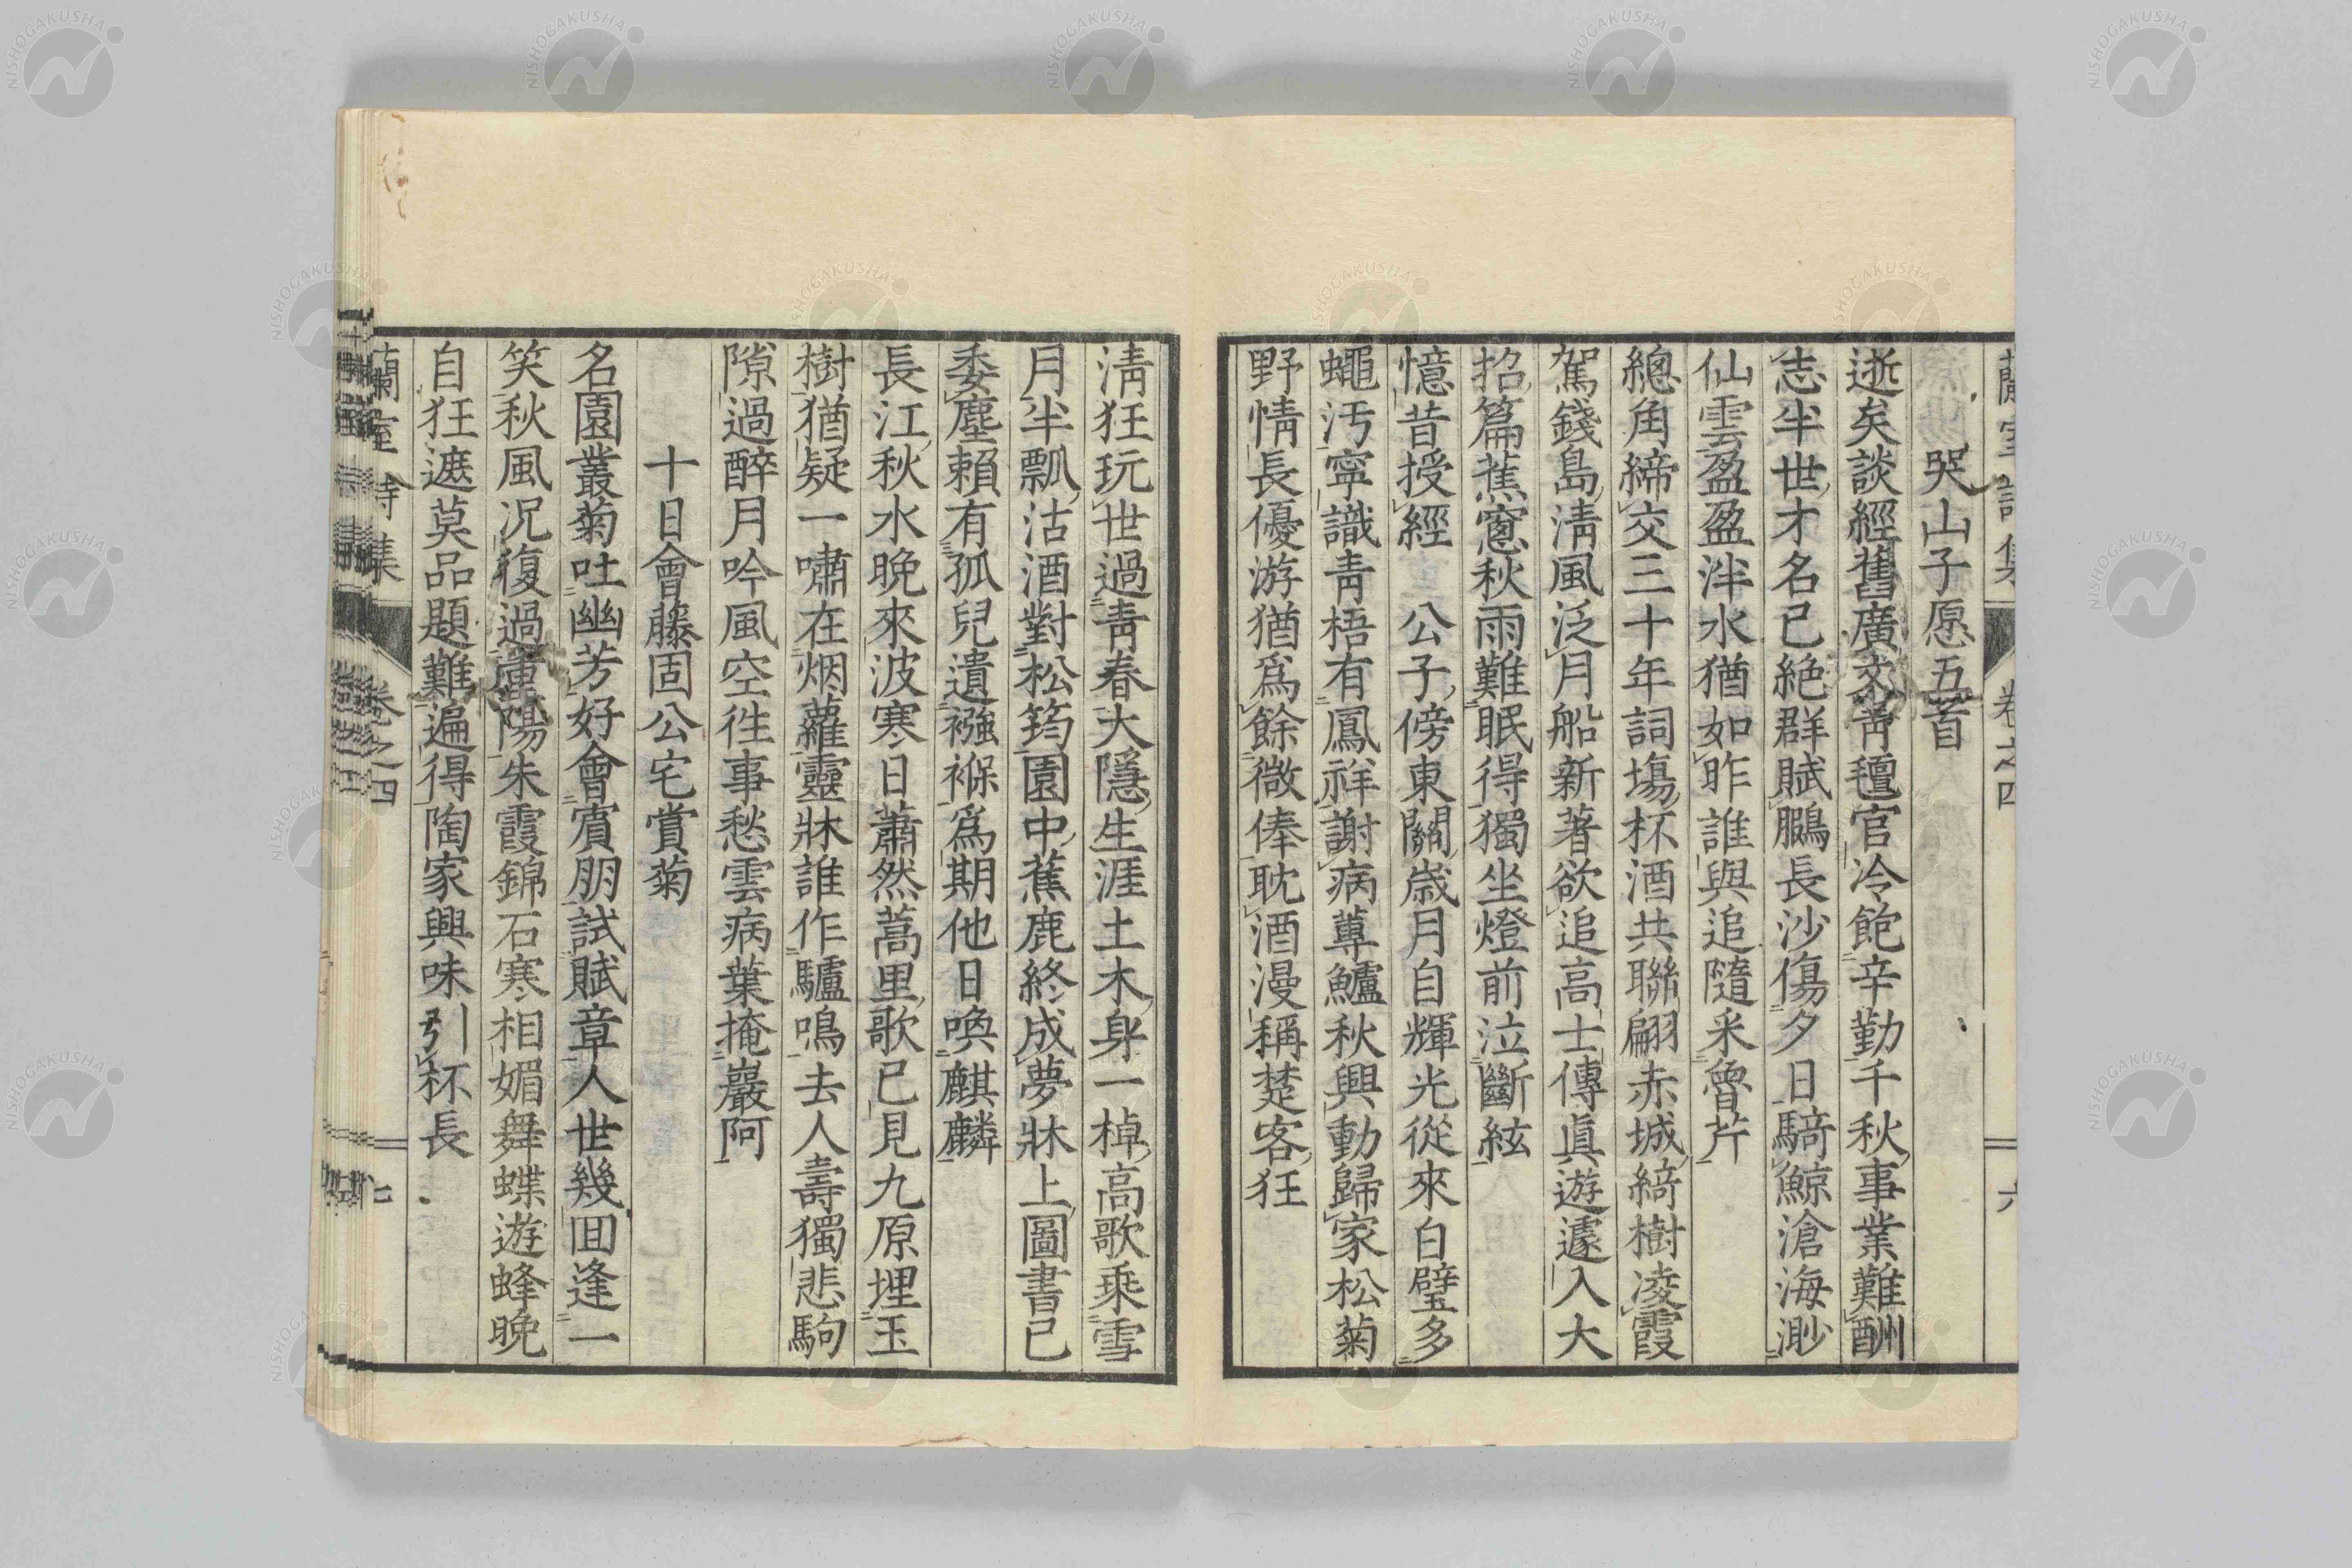 蘭室詩集 卷之四 六
哭山子愿五首
逝矣談經舊廣文靑氊官冷飽辛勤千秋事業難酬
志半世才名已絶群賦鵩長沙傷夕日騎鯨滄海渺
仙雲盈盈泮水猶如昨誰與追隨釆魯芹
總角締交三十年詞塲杯酒共聯翩赤城綺樹凌霞
駕錢島淸風泛月船新著欲追高士傳眞遊遽入大
招篇蕉窻秋雨難眠得獨坐燈前泣斷絃
憶昔授經公子傍東關歲月自輝光從來白璧多
蠅汚寧識靑梧有鳳祥謝病蓴鱸秋興動歸家松菊
野情長優游猶爲餘微俸耽酒漫稱楚客狂
淸狂玩世過靑春大隱生涯土木身一棹高歌乘雪
月半瓢沽酒對松筠園中蕉鹿終成夢牀上圖書已
委塵賴有孤兒遺襁褓爲期他日喚麒麟
長江秋水晩來波寒日蕭然蒿里歌已見九原埋玉
樹猶疑一嘯在烟蘿靈牀誰作驢鳴去人壽獨悲駒
隙過醉月吟風空徃事愁雲病葉掩巖阿
十日會藤固公宅賞菊
名園叢菊吐幽芳好會賓朋試賦章人世幾回逢一
笑秋風况復過重陽朱霞錦石寒相媚舞蝶遊蜂晩
自狂遮莫品題難遍得陶家興味引杯長
蘭室詩集 卷之四 七
NISHOGAKUSHA